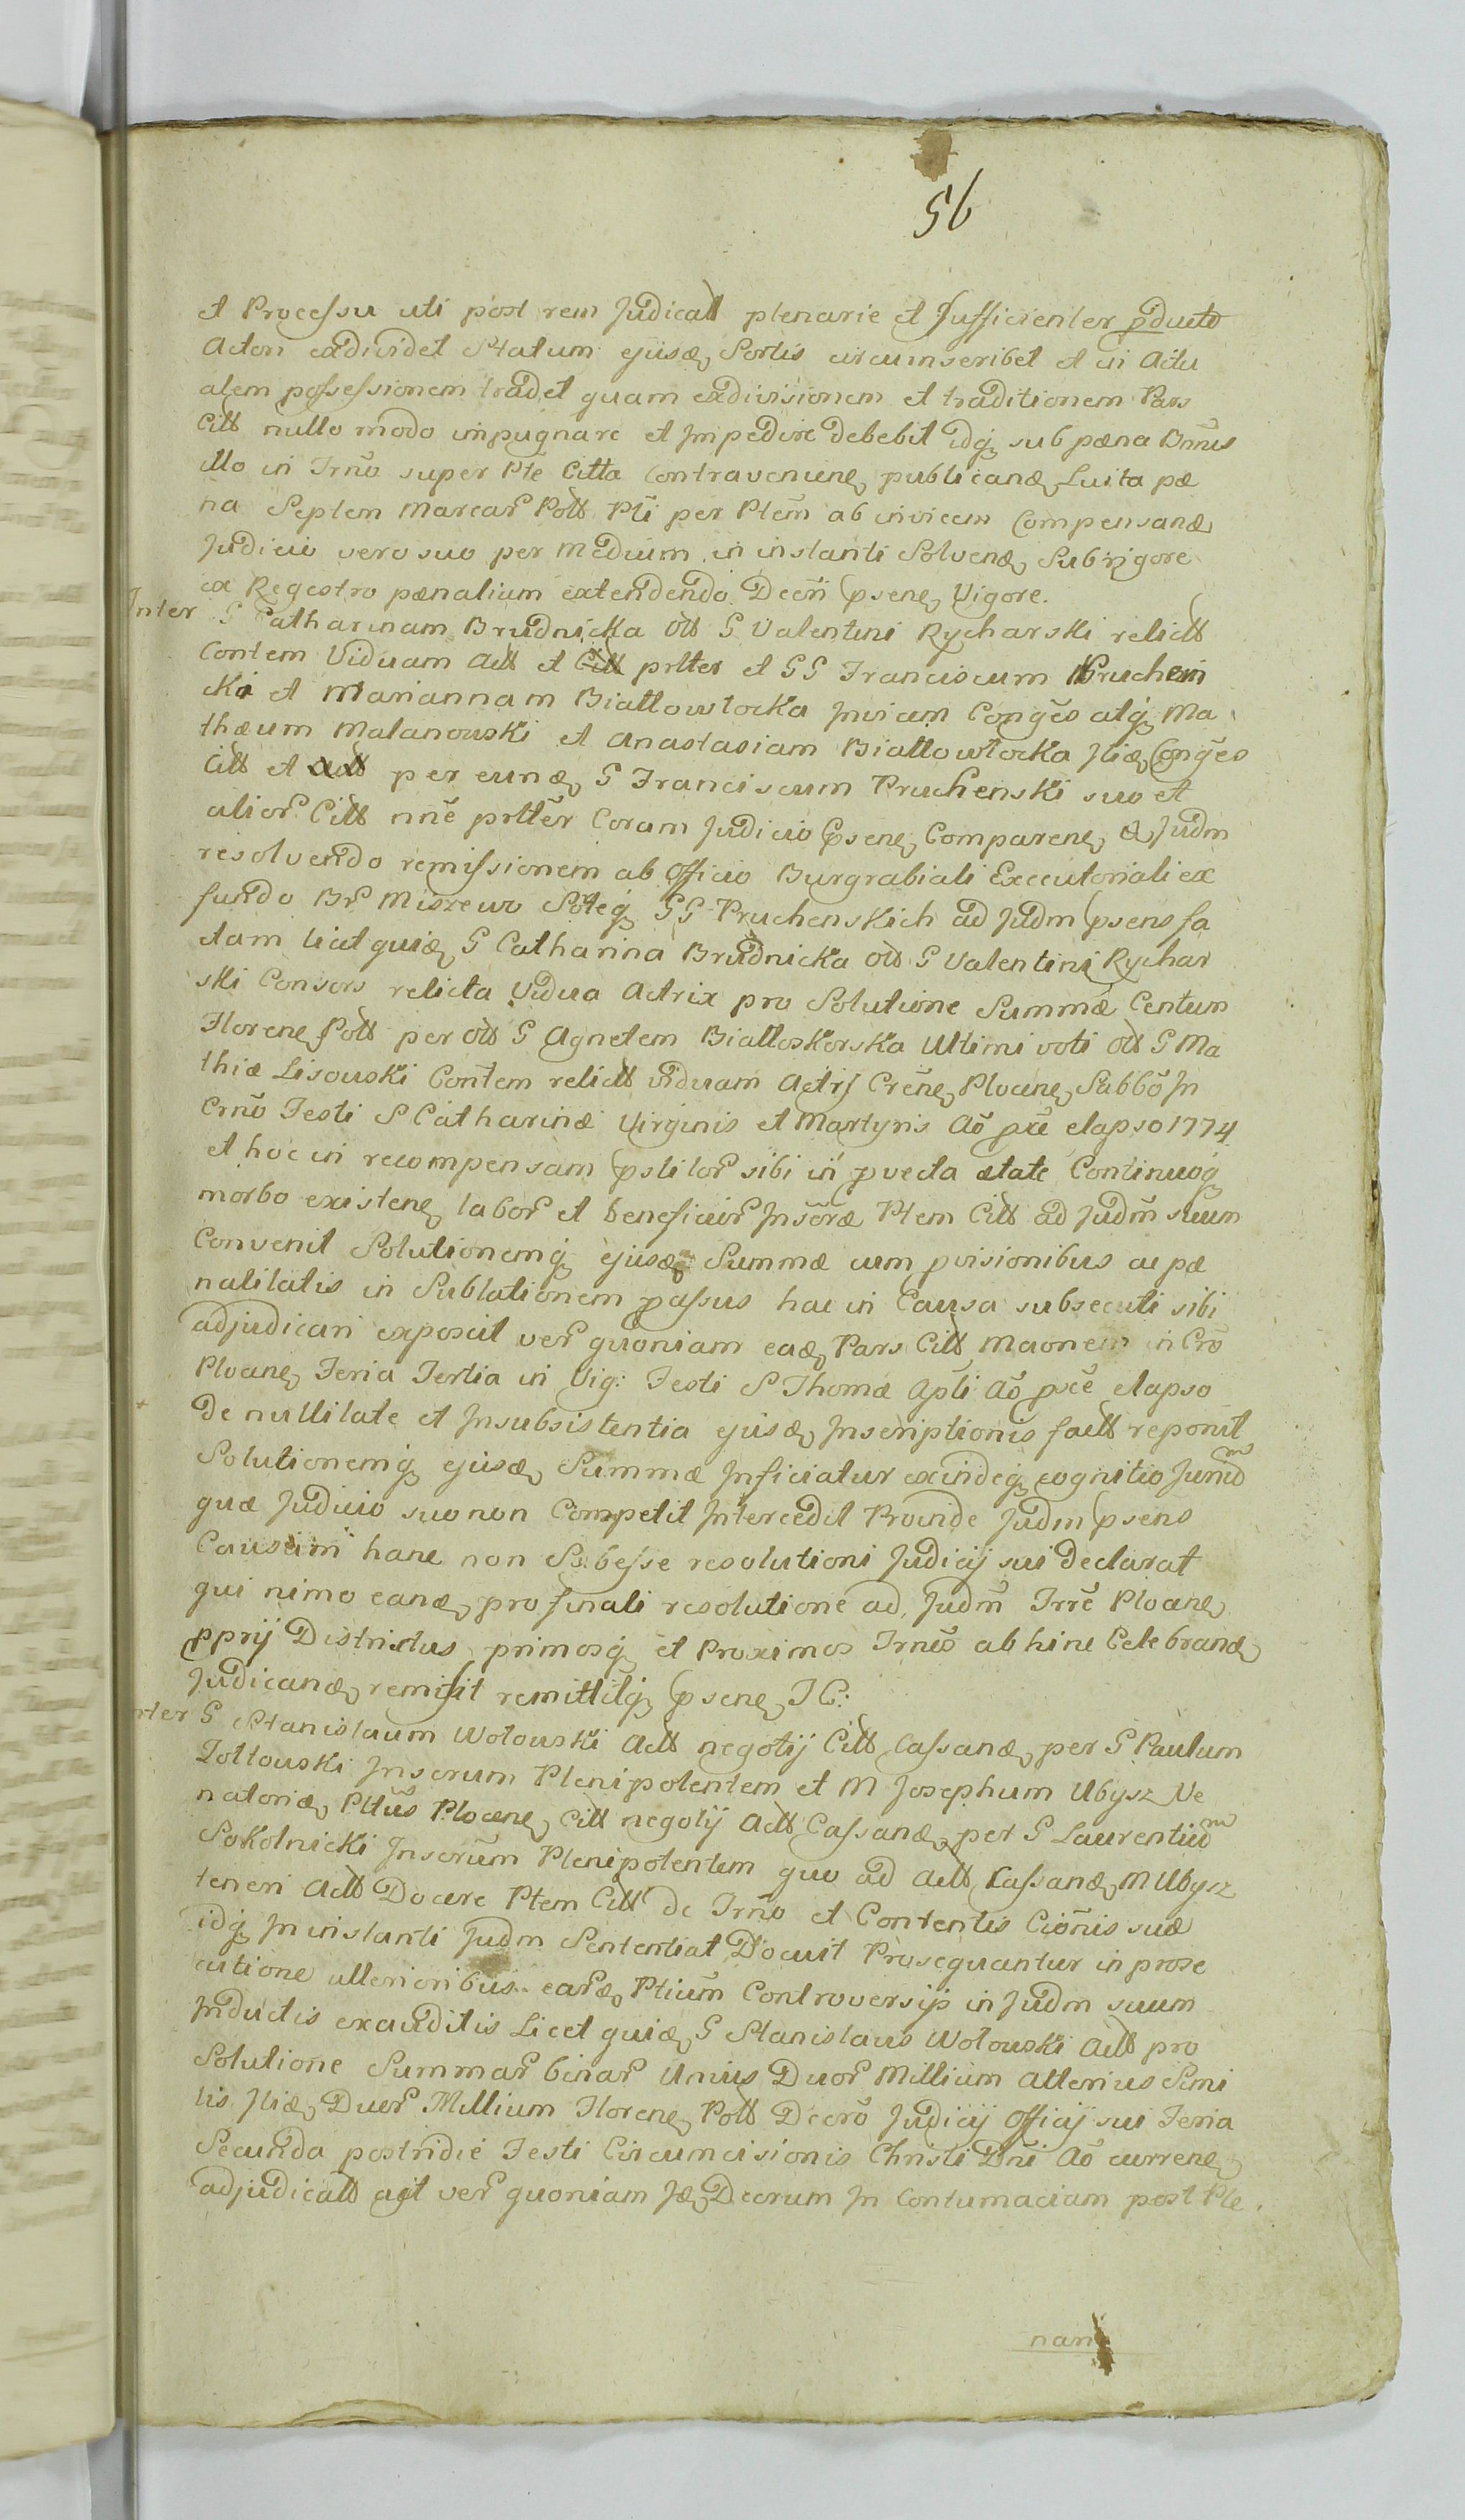 56
et Processu uti post rem Judicatt plenarie et sufficienter pducto
Actori exdividet Statum ejusd Sortis circumscribet et in Actu
alem possessionem tradet quam exdivisionem et traditionem Pars
Citt nullo modo impugnare et Impedire debebit idq sub pæna Bnnis
illo in Trno super Pte Citta Contravenien publicand Luita pæ
na Septem Marcar Pott Pti per Ptem ab invicem Compensand
Judicio vero suo per medium in instanti Solvend Sub rigore
ex Regestro pænalium extendendo Decri psen Vigore.
Inter G Catharinam Brudnicka ott G Valentini Rycharski relictt
Contem Viduam Actt et Citt prtter et GG Franciscum Pruchein
cki et Mariannam Biattowtocka Invicem Conges atq Ma
thæum Malanowski et Anastasiam Biattowtocka Itid Conges
Citt et Actt per eund G Franciscum Pruchenski suo et
alior Citt nne prtter Coram Judicio psen Comparen & Judm
resolvendo remissionem ab Officio Burgrabiali Executoriali ex
fundo Br Miszewo Soteq GG Pruchenskich ad Judm psens fa
ctam licet quid G Catharina Brudnicka ott G Valentini Rychar
ski Consors relicta Vidua Actrix pro Solutione Summæ Centum
Floren Pott per ott G Agnetem Biattoskorska Ultimi voti ott G Ma
thiæ Lisowski Contem relictt viduam Actis Cren Plocen Sabbo In
Crno Festi S Catharinæ Virginis et Martyris Ao pxe elapso 1774
et hoc in recompensam pstitor sibi in pvecta ætate Continuoq
morbo existen labor et beneficior Inscræ Ptem Citt ad Judm suum
Convenit Solutionemq ejusd Summæ cum pvisionibus ac pæ
nalitatis in Sublationem passus hac in Causa subsecuti sibi
adjudicari exposcit ver quoniam ead Pars Citt Maonem in Cro
Plocen Feria Tertia in Vig: Festi S Thomæ Apli Ao pxe elapso
de nullitate et Insubsistentia ejusd Inscriptionis factt reponit
Solutionemq ejusd Summæ Inficiatur exindeq cognitio Jurium
quæ Judicio suo non Competit Intercedit Proinde Judm psens
Causam hanc non Subesse resolutioni Judicij sui declarat
qui nimo eand pro finali resolutione ad Judm Trre Plocen
pprij Districtus primosq et Proximos Trnos ab hinc Celebrand
Judicand remisit remittitq psen I C:
nter G Stanislaum Wotowski Actt negotij Citt Cassand per G Paulum
Zottowski Inscrum Plenipotentem et M Josephum Ubysz Ve
natorid Pttus Plocen Citt negotij Actt Cassand per G Laurentium
Sokolnicki Inscrum Plenipotentem quo ad Actt Cassand M Ubysz
teneri Actt Docere Ptem Citt de Trno et Contentis Cionis suæ
idq In instanti Judm Sententiat Docuit Prosequantur in prose
cutione ulterioribus eard Ptium Controversijs in Judm suum
Inductis exauditis Licet quid G Stanislaus Wotowski Actt pro
Solutione Summar binar Unius Duor Millium alterius Simi
lis Itid Duor Millium Floren Pott Decro Judicij Officij sui Feria
Secunda postridie Festi Circumcisionis Christi Dni Ao curren
adjudicatt agit ver quoniam Id Decrum In Contumaciam post Ple
nan